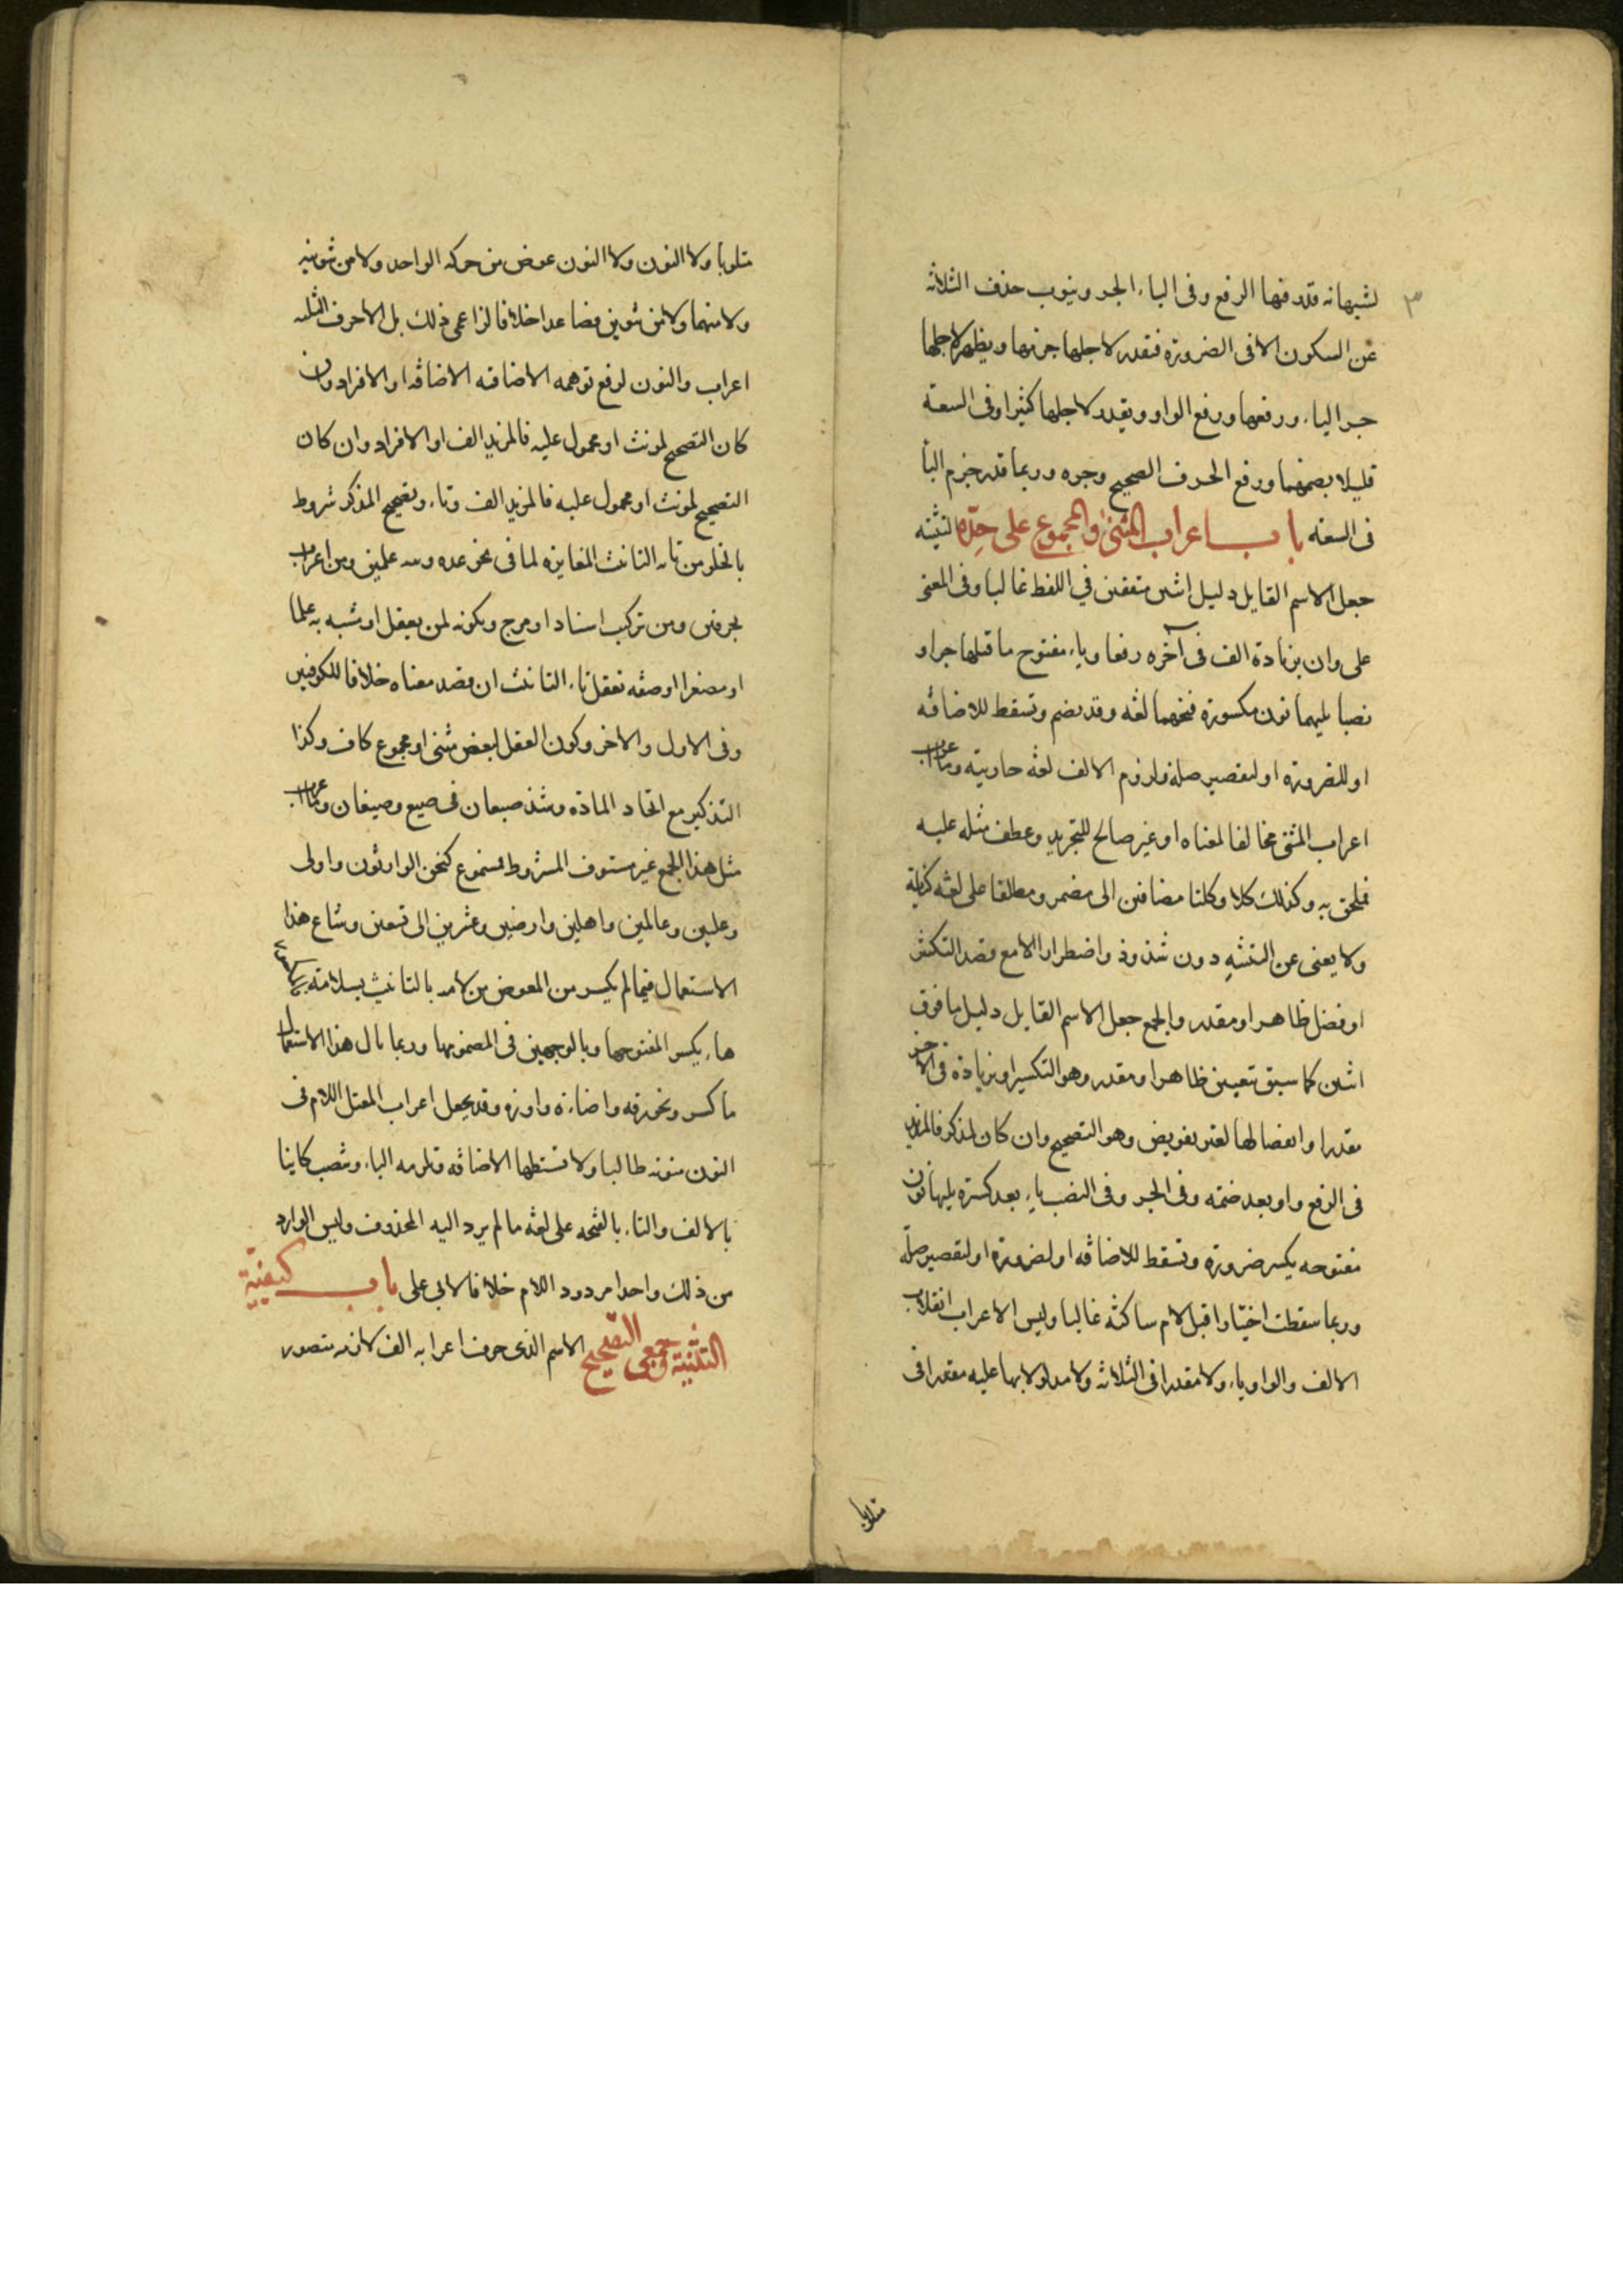 ٣
لشبهانه قدر فيها الرفع وفى الياء الجر وينوب حذف الثلاثة
عن السكون الا فى الضرورة فتقدر لاجلها جزمها ويظهر لاجلها
جر الياء ورفعها ورفع الواو ويقدر لاجلها كثيرا وفى السعة
قليلا نصبهما ورفع الحرف الصحيح وجره وربما قدر جزم اليا
فى السعه باب اعراب المثنى والمجموع على حدّه التثنيه
جعل الاسم القابل دليل اثنين متفقين في اللفظ غالبا وفى المعنى
على وان بزيادة الف فى آخره رفعا وياء مفتوح ما قبلها جرا و
نصبا يليهما نون مكسورة فتحهما لغه وقد يضم وتسقط للاضافه
او للضرورة او لتقصير صلة ولزوم الالف لغه حارثية وما اعرب
اعراب المثنى مخالفا لمعناه او غير صالح للتجريد وعطف مثله عليه
فملحق به وكذلك كلا وكلتا مضافين الى مضمر ومطلقا على لغه كنانة
ولا يغنى عن التثنيه دون شذوذ واضطرار الا مع قصد التكثير
او فصل ظاهر او مقدر والجمع جعل الاسم القابل دليل ما فوق
اثنين كما سبق بتغيير ظاهر او مقدر وهو التكسير او بزيادة فى الآخر
مقدر انفصالها لغير تعويض وهو التصحيح وان كان لمذكر فالمزيد
فى الرفع واو بعد ضمه وفى الجر وفى النصب ياء بعد كسره يليها نون
مفتوحه يكسر ضرورة وتسقط للاضافه او لضرورة او لتقصير صلة
وربما سقطت اختيارا قبل لام ساكنه غالبا وليس الاعراب انقلاب
الالف والواو ياء ولا مقدرا فى الثلاثه ولا مدلولا بها عليه مقدرا فى
متلوها
متلوها ولا النون ولا النون عوض من حركه الواحد ولا من تنوينه
ولا منهما ولا من تنوين فصاعدا خلافا لزاعمى ذلك بل الاحرف الثلثه
اعراب والنون لرفع توهمه الاضافه الاضافه او الافراد وان
كان التصحيح لمونث او محمول عليه فالمزيد الف او الافراد وان كان
التصحيح لمونث او محمول عليه فالمزيد الف وتاء وتصحيح المذكر شروط
بالخلو من تاء التانيث المغايرة لما فى نحو عده وثبه علمين ومن اعراب
بحرفين ومن تركيب اسناد او مزج وبكونه لمن يعقل او مشبه به علما
او مصغرا او صفه تقبل تاء التانيث ان قصد معناه خلافا للكوفيين
وفى الاول والاخر وكون العقل لبعض مثنى او مجموع كاف وكذا
التذكير مع اتحاد المادة وشذ ضبعان فى ضبع وضبعان وما اعرب
مثل هذا الجمع غير مستوف الشروط فمسموع كنحن الوارثون واولى
وعليين وعالمين واهلين وارضين وعشرين الى تسعين وشاع هذا
الاستعمال فيما لم يكسر من المعوض من لامه بالتانيث بسلامة
هاء بكسر المفتوحها وبالوجهين فى المضمومها وربما نال هذا الاستعمال
ما كسر ونحو رقه واضاءة واوزه وقد يجعل اعراب المعتل اللام فى
النون منونه غالبا ولا تسقطها الاضافه وتلزمه الياء وينصب كاينا
بالالف والتاء بالفتحه على لغه ما لم يرد اليه المحذوف وليس الوارد
من ذلك واحدا مردود اللام خلافا لابى على باب كيفيّة
التثنية وجمعى التصحيح الاسم الذى حرف اعرابه الف لازمه مقصور